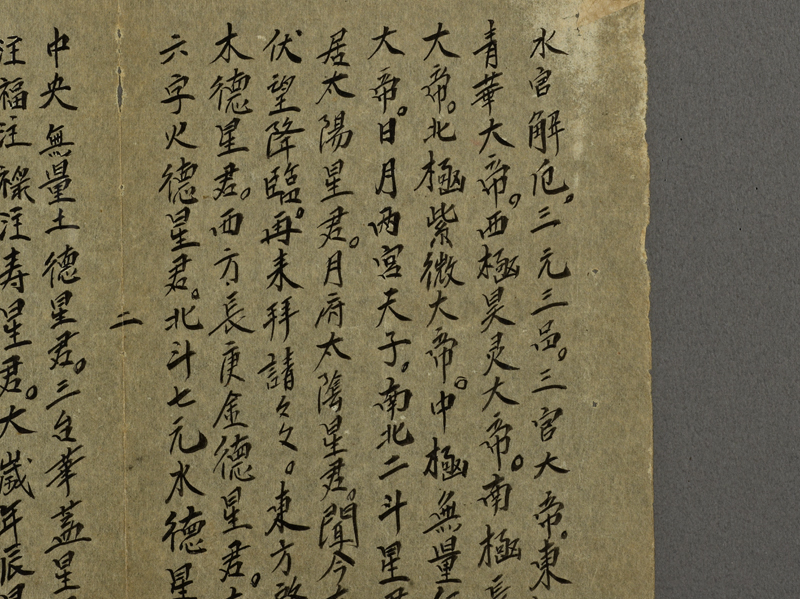 水官解厄。三元三品。三官大帝。東
青華大帝。西極昊灵大帝。南極長
大帝。北極紫微大帝。中極無量
大帝。日月兩宮天子。南北二斗星君
居太陽星君。月府太陰星君。聞今
伏望降臨。再来拜請々々。東方
木德星君。西方長庚金德星君。
六字火德星君。北斗七元水德星
二
中央無量土德星君。三台華蓋星
注福注祿注寿星君。大歲年辰